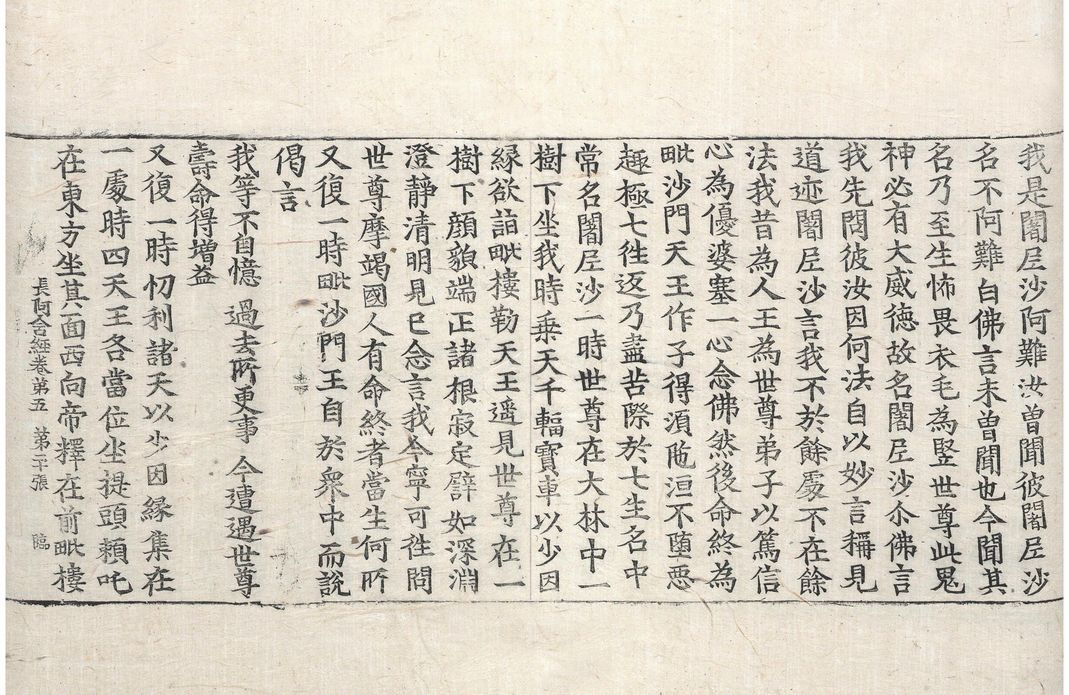 我是闍尼沙阿難汝曾聞彼闍尼沙
名不阿難白佛言未曾聞也今聞其
名乃至生怖畏衣毛為竪世尊此鬼
神必有大威徳故名闍尼沙尒佛言
我先問彼汝因何法自以妙言稱見
道迹闍尼沙言我不於餘處不在餘
法我昔為人王為世尊弟子以篤信
心為優婆塞一心念佛然後命終為
毗沙門天王作子得湏陁洹不墮惡
趣極七徃返乃盡苦際於七生名中
常名闍尼沙一時世尊在大林中一
樹下坐我時乗天千輻寳車以少因
縁欲詣毗樓勒天王遥見世尊在一
樹下顔貌端正諸根寂定譬如深淵
澄靜清明見已念言我今寧可徃問
世尊摩竭國人有命終者當生何所
又復一時毗沙門王自於衆中而說
偈言
我等不自憶 過去所更事 今遭遇世尊
壽命得增益
又復一時忉利諸天以少因縁集在
一處時四天王各當位坐提頭頼吒
在東方坐其面西向帝釋在前毗樓
長阿含經卷第五 第二十張 臨